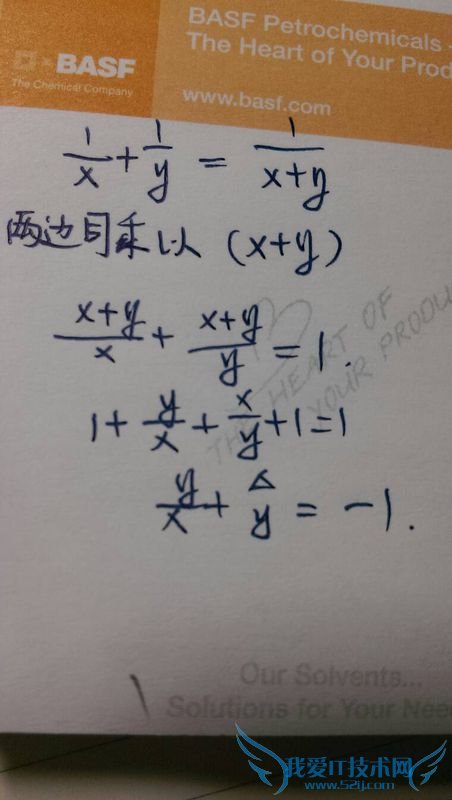 BASF Petrochemicals -
The Heart of Your Prod
BASF
The Chemical Company
www.basf.com
1/x + 1/y = 1/(x+y)
两边同乘以 (x+y)
(x+y)/x + (x+y)/y = 1.
THE HEART OF
YOUR PRODU
1 + y/x + x/y + 1 = 1
y/x + x/y = -1.
Our Solvents...
Solutions for Your Nee
我爱IT技术网
www.52ij.com